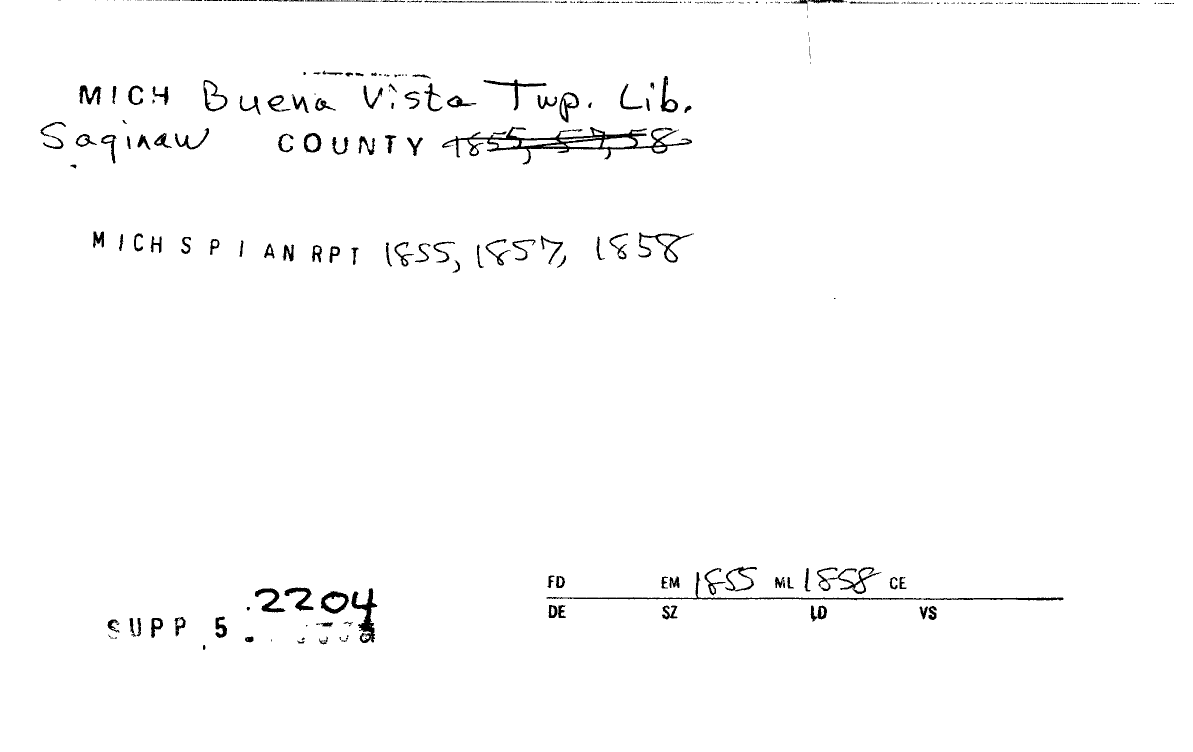 MICH Buena Vista Twp. Lib.
Saginaw COUNTY 1855, 57, 58
MICH S P I AN RPT 1855, 1857, 1858
.2204
SUPP 5.
FD EM 1855 ML 1858 CE
DE SZ LD VS